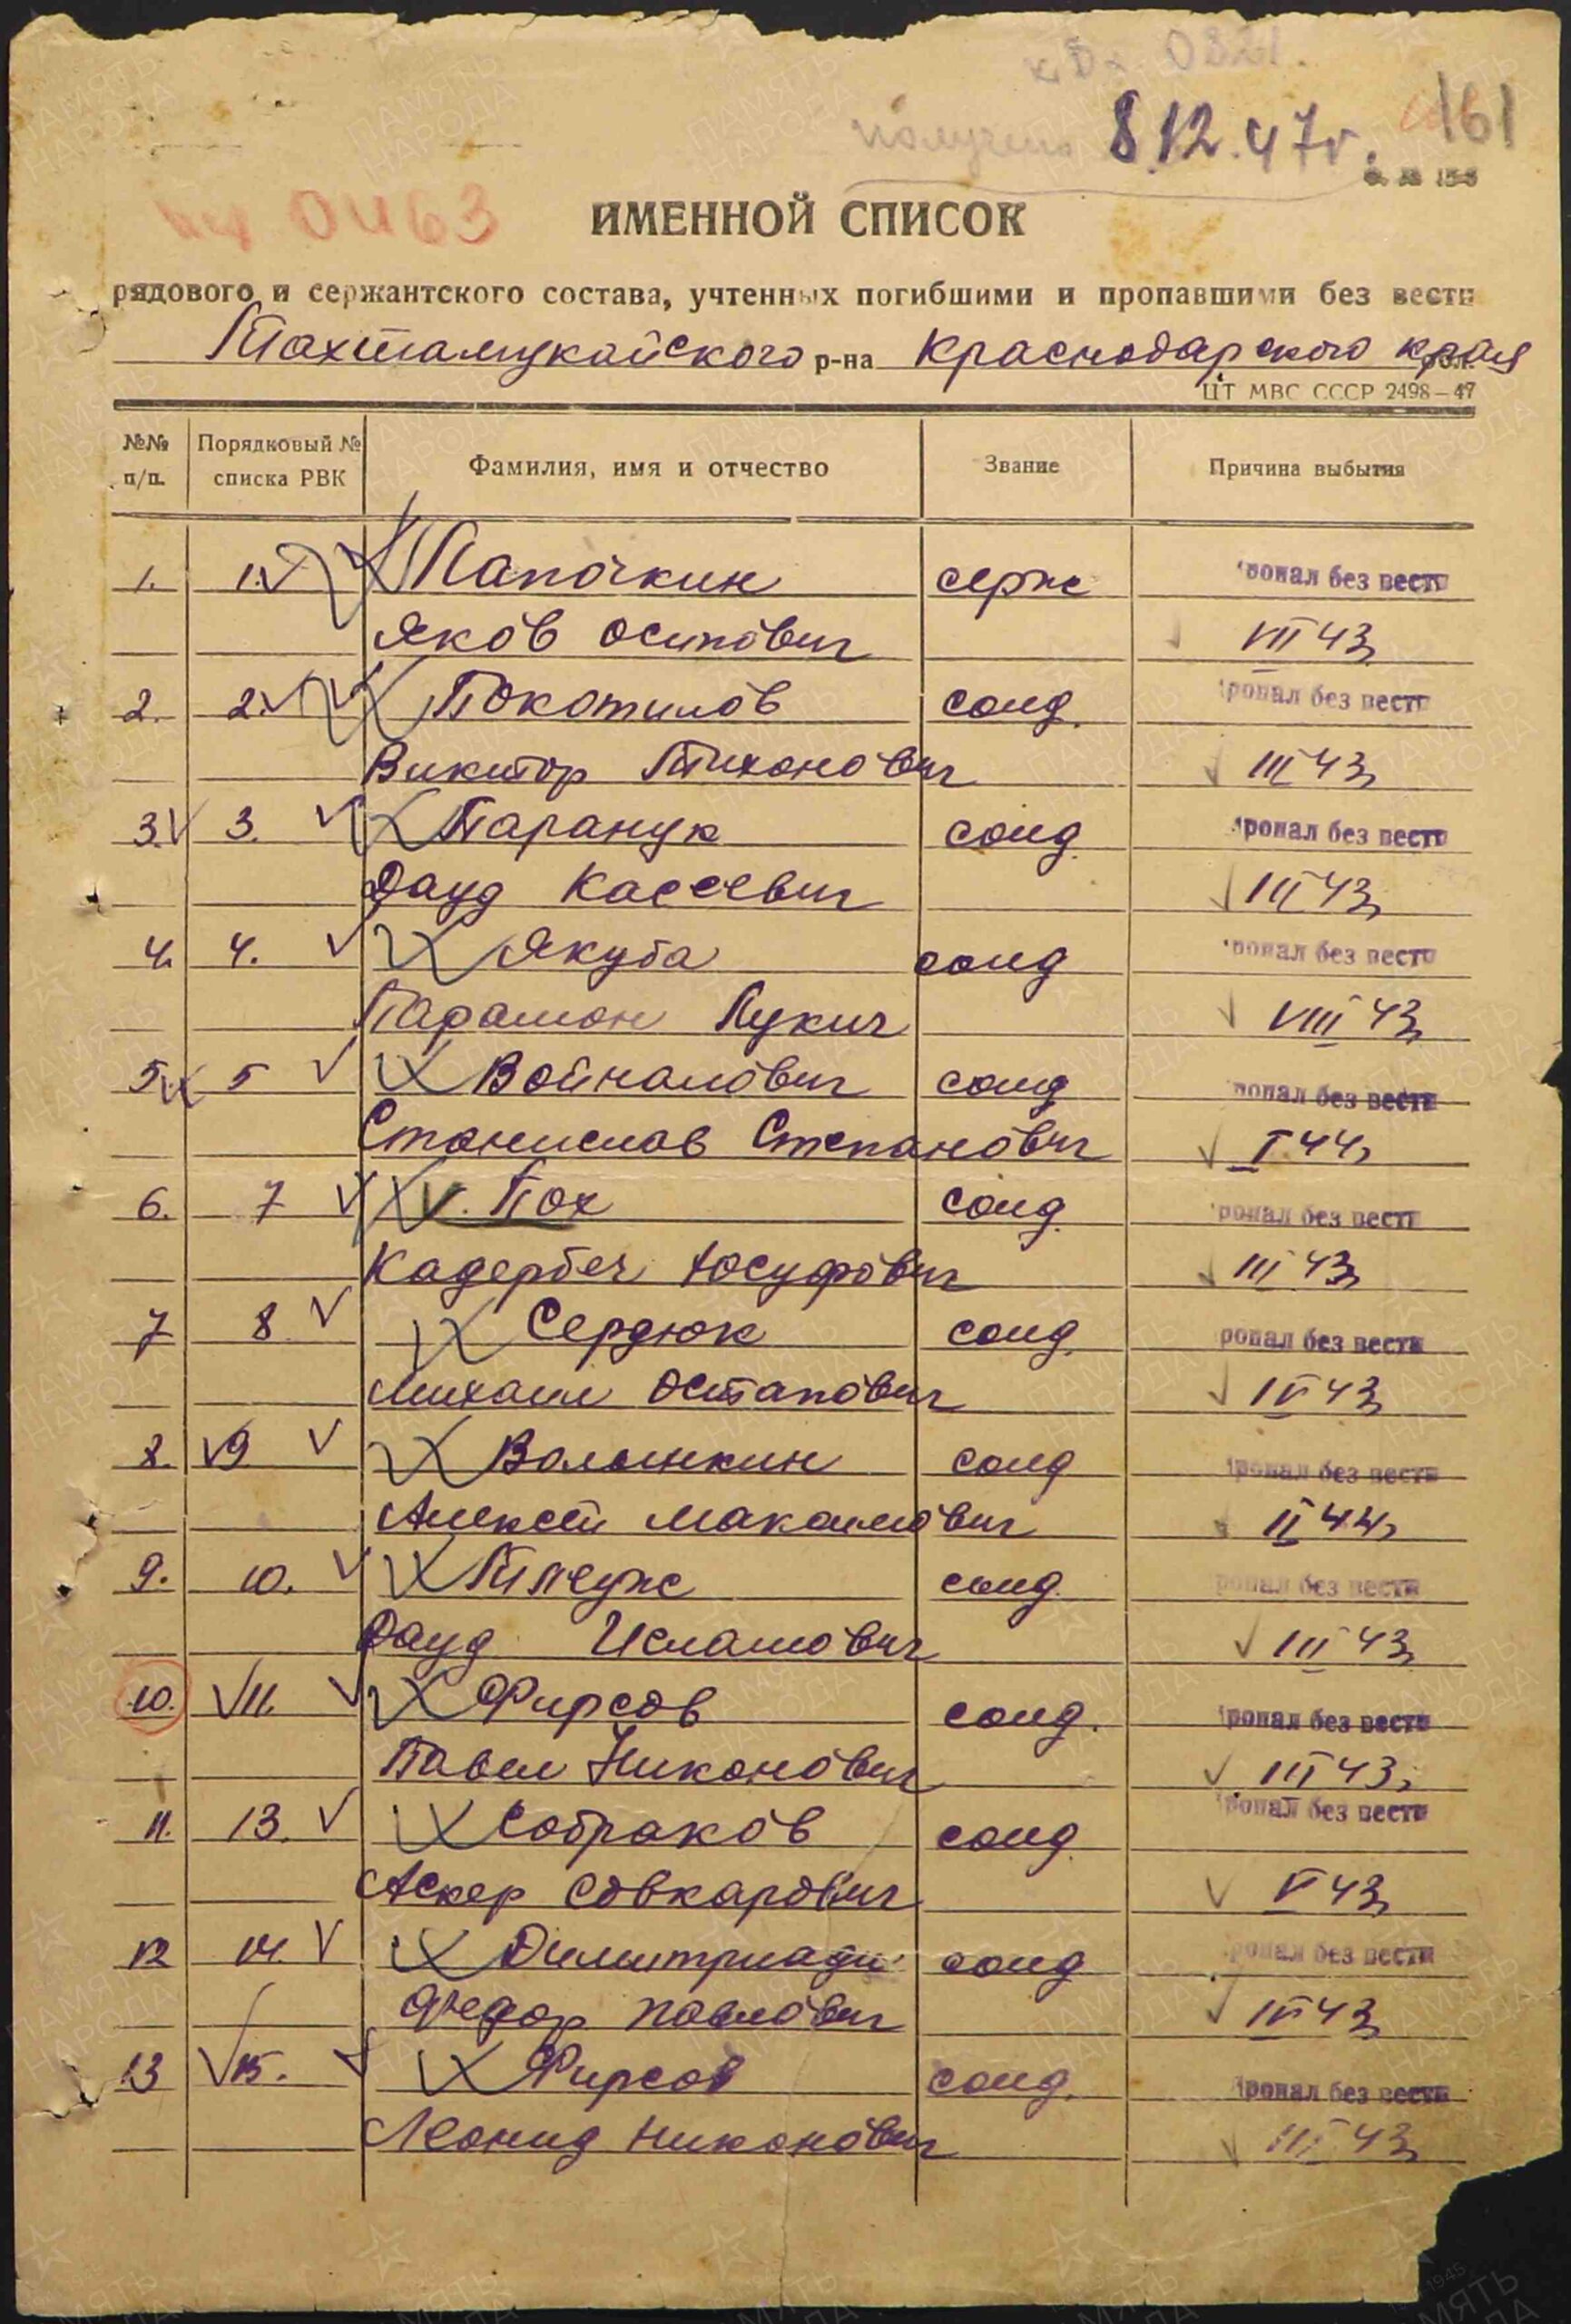 0821.
получено 8.12.47г. 161
вх 0463
ИМЕННОЙ СПИСОК
рядового и сержантского состава, учтенных погибшими и пропавшими без вести
Тахтамукайского р-на Краснодарского края
ЦТ МВС СССР 2498—47
№№ п/п. Порядковый № списка РВК Фамилия, имя и отчество Звание Причина выбытия
1. 1. Папочкин серж пропал без вести
Яков Осипович VII 43г
2. 2. Покотилов солд. пропал без вести
Виктор Тихонович III 43г
3. 3. Паранук солд. пропал без вести
Дауд Кассевич III 43г
4. 4. Якуба солд пропал без вести
Парамон Лукич VIII 43г
5. 5 Войналович солд пропал без вести
Станислав Степанович I 44г
6. 7 Пох солд. пропал без вести
Кадербеч Юсуфович III 43г
7 8 Сердюк солд. пропал без вести
Михаил Остапович IV 43г
8. 9 Волынкин солд пропал без вести
Алексей Максимович II 44г
9. 10. Тлеуж солд. пропал без вести
Дауд Исламович III 43г
10. 11. Фирсов солд. пропал без вести
Павел Никонович III 43г
11. 13. Собраков солд. пропал без вести
Аскер Совкарович V 43г
12 14. Димитриади солд пропал без вести
Федор Павлович IV 43г
13 15. Фирсов солд. пропал без вести
Леонид Никонович III 43г